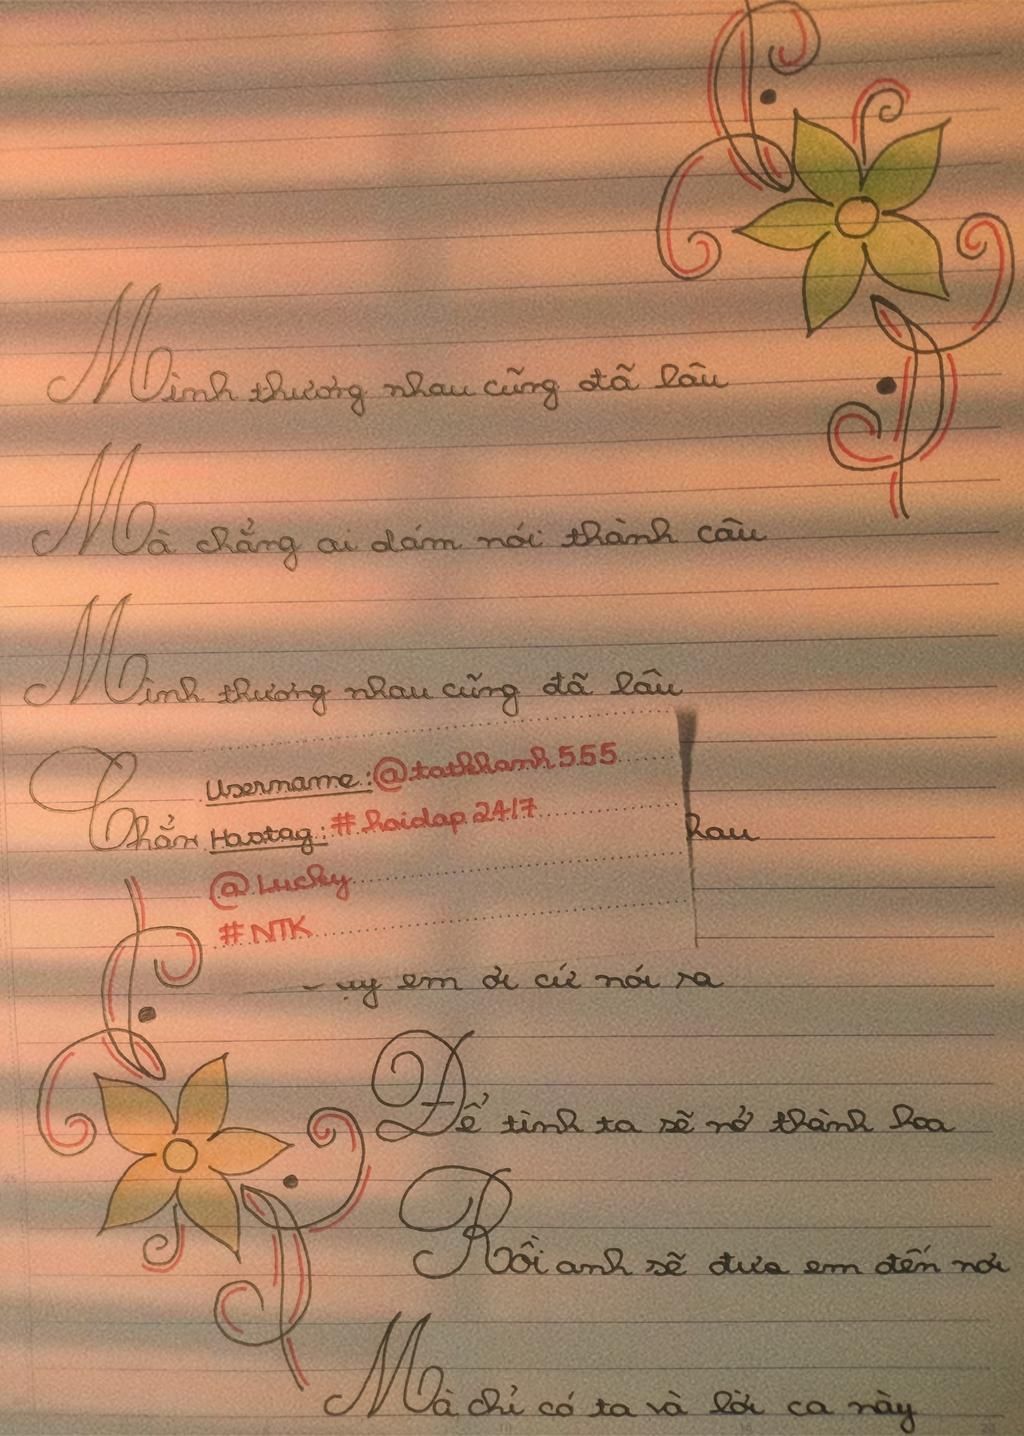 Mình thương nhau cũng đã lâu
Mà chẳng ai dám nói thành câu
Mình thương nhau cũng đã lâu
Username: @tatkhanh555
Hastag: #hoidap247
@Lucky
#NTK
em ơi cứ nói ra
Để tình ta sẽ nở thành hoa
Rồi anh sẽ đưa em đến nơi
Mà chỉ có ta và lời ca này